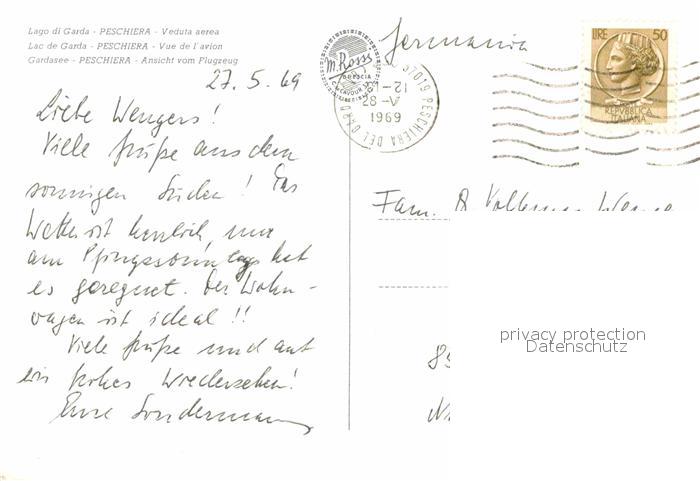 Lago di Garda - PESCHIERA - Veduta aerea
Lac de Garda - PESCHIERA - Vue de l'avion
Gardasee - PESCHIERA - Ansicht vom Flugzeug
27.5.69
Liebe Wengers!
Viele Grüße aus dem
sonnigen Süden! Das
Wetter ist herrlich, nur
am Pfingstsonntag hat
es geregnet. Der Wohn-
wagen ist ideal!!
Viele Grüße und auf
ein frohes Wiedersehen!
Eure Sondermann
M. Rossi
BRESCIA
Germania
37019 PESCHIERA DEL GARD
12-1
28-V
1969
LIRE 50
REPVBBLICA
ITALIANA
Fam.
privacy protection
Datenschutz